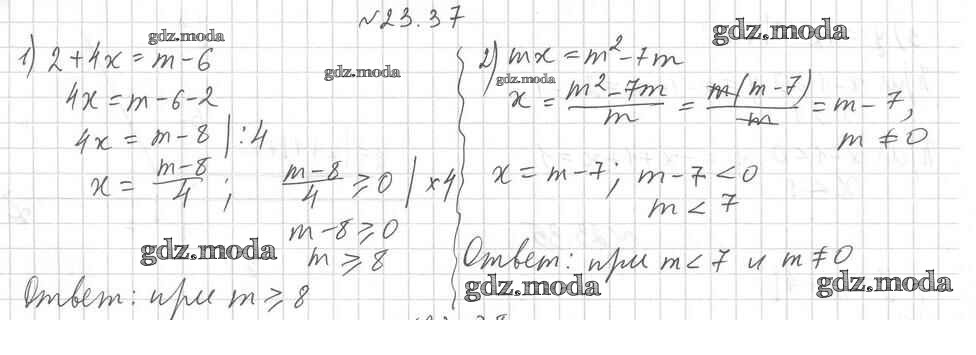 №23.37
gdz.moda
gdz.moda
1) 2+4x = m-6
4x = m-6-2
4x = m-8 | :4
x = m-8/4 ; m-8/4 ⩾ 0 | ×4
m-8 ⩾ 0
m ⩾ 8
gdz.moda
Ответ: при m ⩾ 8
gdz.moda
2) mx = m²-7m
gdz.moda
x = m²-7m/m = m(m-7)/m = m-7,
m ≠ 0
x = m-7; m-7 < 0
m < 7
Ответ: при m < 7 и m ≠ 0
gdz.moda
gdz.moda